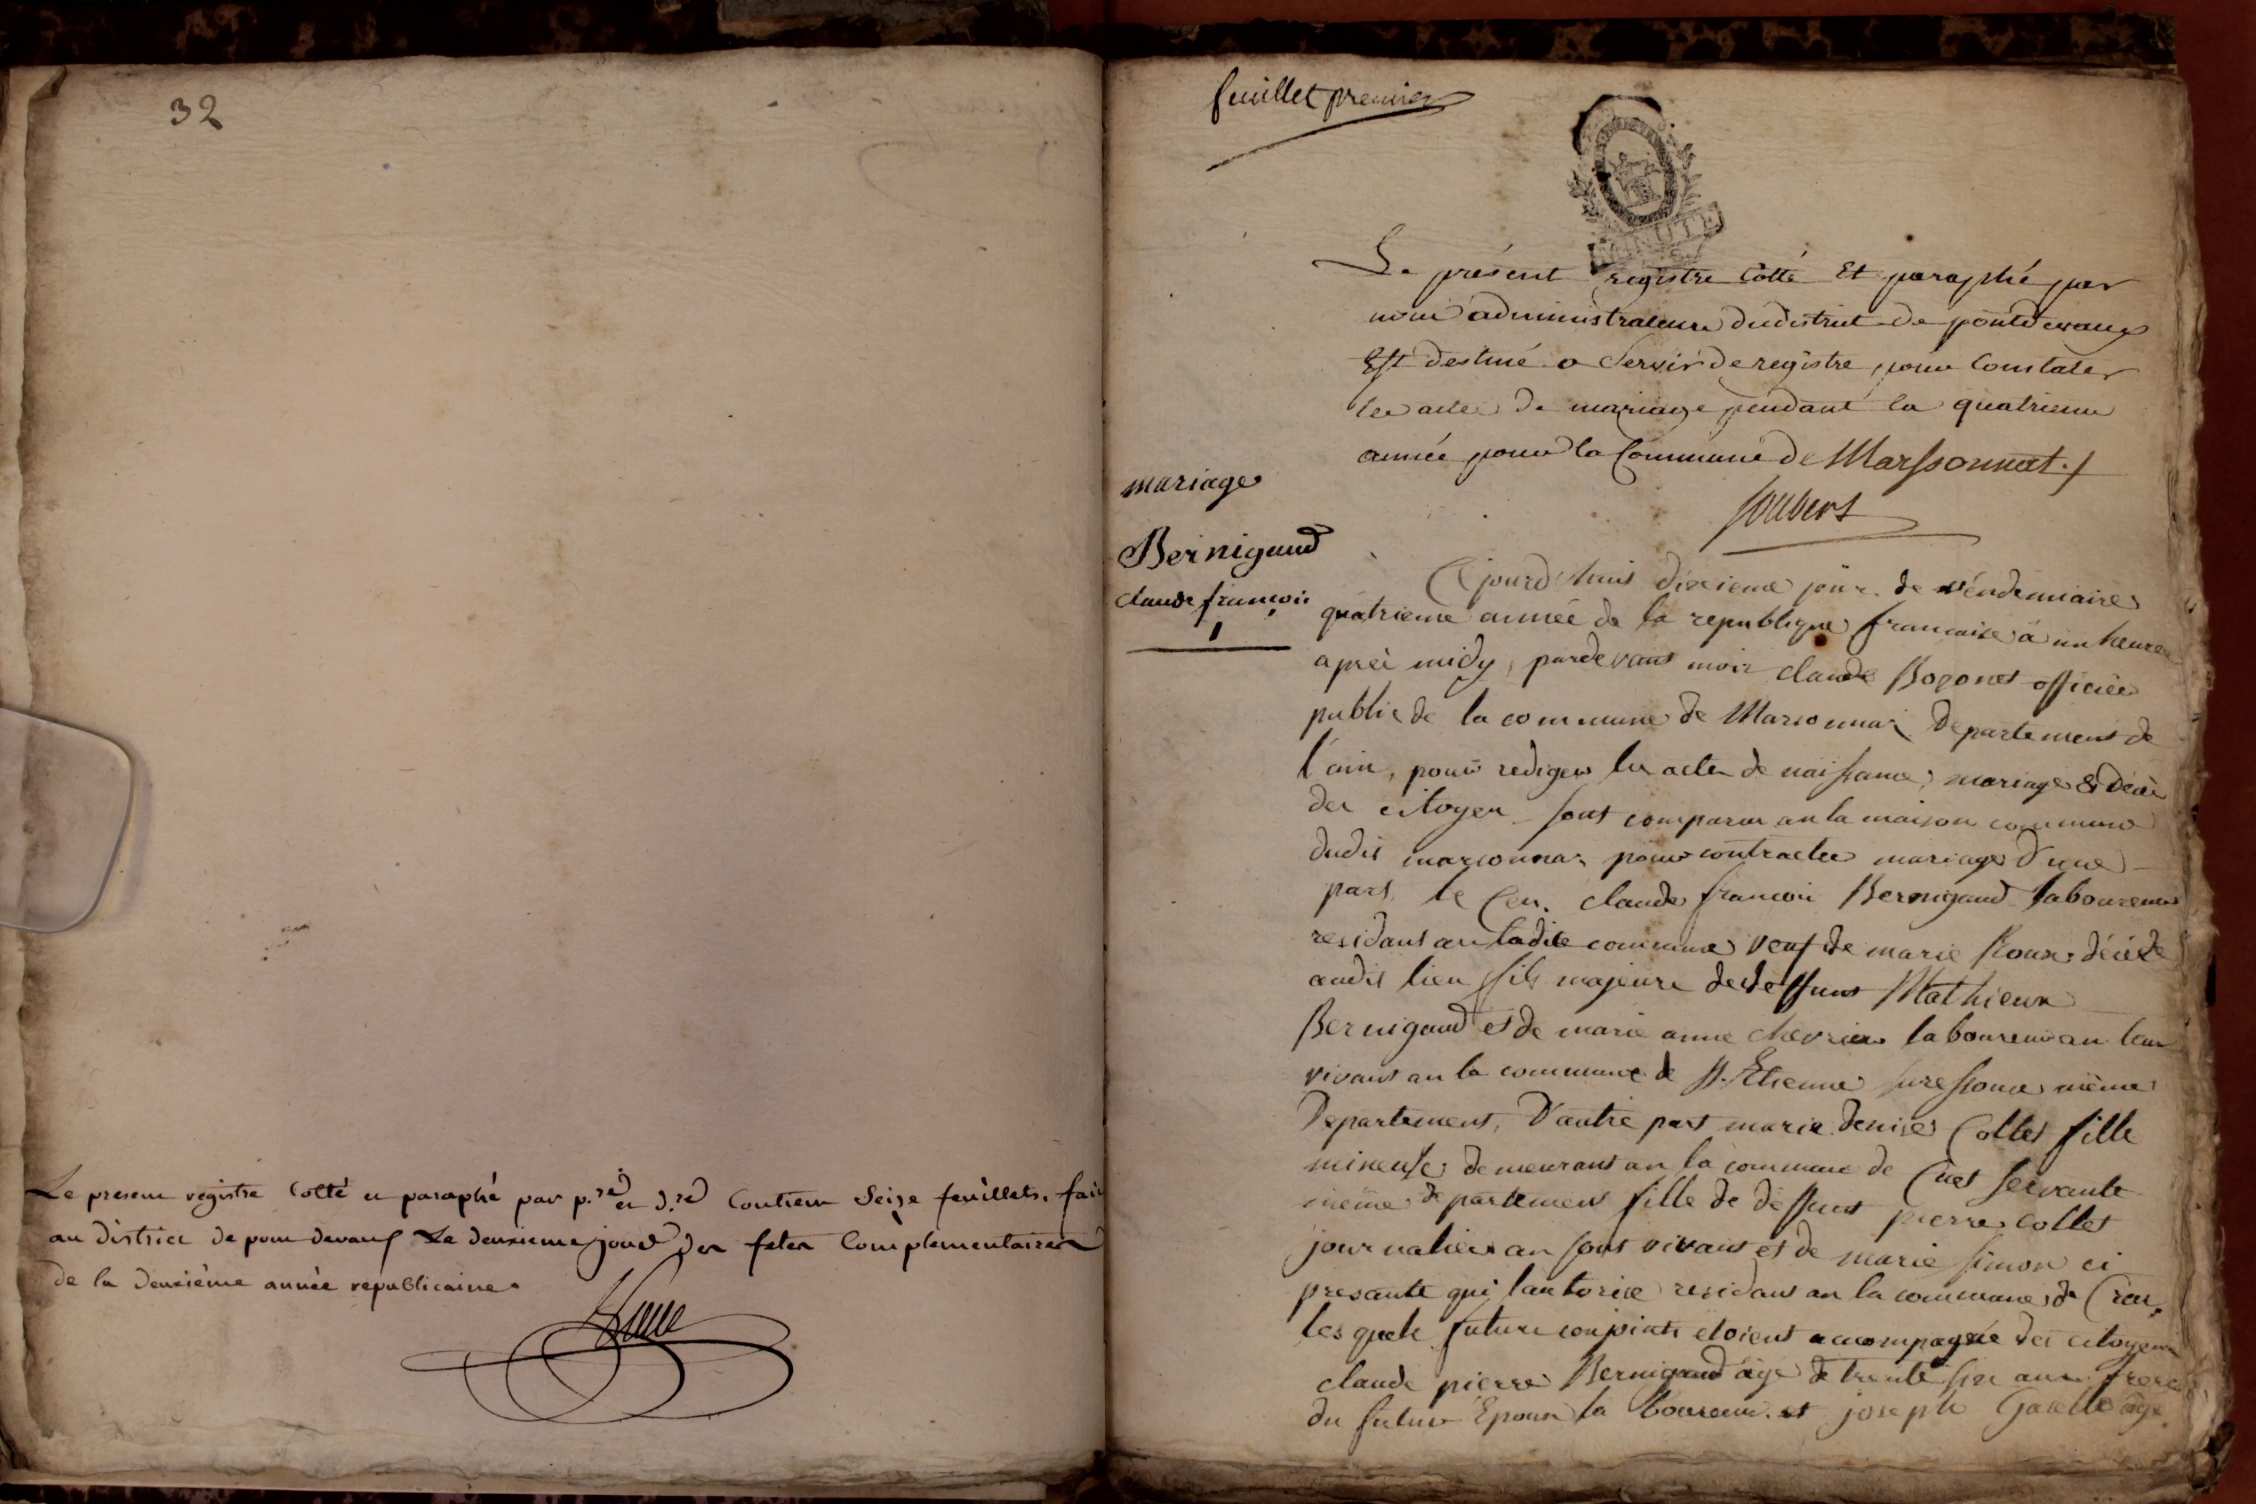 32
Le present registre Cotté et paraphé par p.re et d.re Contient Seize feuillets, fait
au district de pont devaux Le deuxieme jour des fetes Complementaires
de la deuxième année republicaine
feuillet premier
Le présent registre Cotté Et paraphé par
nous administrateur du district de pontdevaux
Est destiné a Servir de registre pour Constater
les actes de mariage pendant la quatrieme
année pour la Commune de Marssonnat ./
Joubert
mariage
Bernigaud
claude françois
1
Cejourd'huis dixieme jour de véndemiaire
quatrieme année de la republique francaise à un heure
après midy, pardevant moi claude Bozonet officiée
public de la commune de Marsonnaz Departement de
l'ain, pour rediger les actes de naissance, mariage & décès
des citoyen sont comparu an la maison commune
dudit marsonnaz pour contracter mariage d'une
part, le Cen. claude francoi Bernigaud laboureur
residant an ladite commune veuf de marie Roux décéde
audit lieu fils majeure de deffunt Mathieux
Bernigaud et de marie anne chevrier laboureur an leur
vivant an la commune de St. Etienne sur essouce même
Departement, D'autre part marie denise Collet fille
mineuse demeurant an la commune de Cuet servante
même departement fille de deffunt pierre collet
journalier an sont vivant et de marie simon ci
presante qui l'autorise residant an la commune de Cras,
les quels future conjoints etoient accompagnée des citoyens
claude pierre Bernigaud âge de trente six ans frere
du futur Epoux laboureur. et joseph Gatelle âge